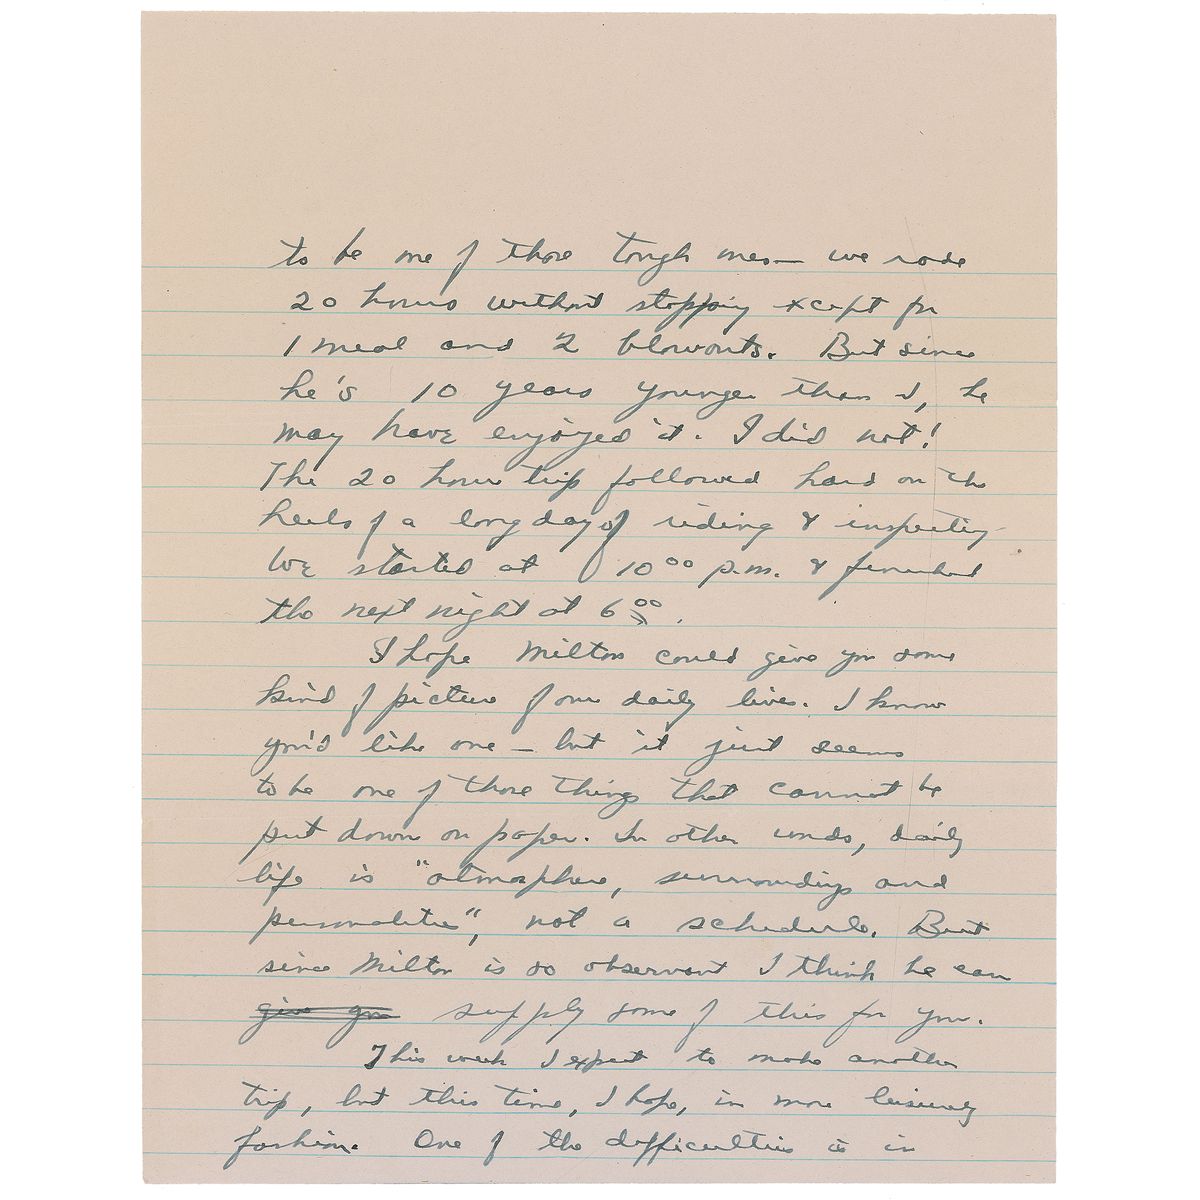 to be one of those tough ones — we rode
20 hours without stopping except for
1 meal and 2 blowouts. But since
he's 10 years younger than I, he
may have enjoyed it. I did not!
The 20 hour trip followed hard on the
heels of a long day of riding & inspecting
We started at 10 00 p.m. & finished
the next night at 6 00.
I hope Milton could give you some
kind of picture of our daily lives. I know
you'd like one — but it just seems
to be one of those things that cannot be
put down on paper. In other words, daily
life is "atmosphere, surroundings and
personalities", not a schedule. But
since Milton is so observant I think he can
give you supply some of this for you.
This week I expect to make another
trip, but this time, I hope, in more leisurely
fashion. One of the difficulties is in